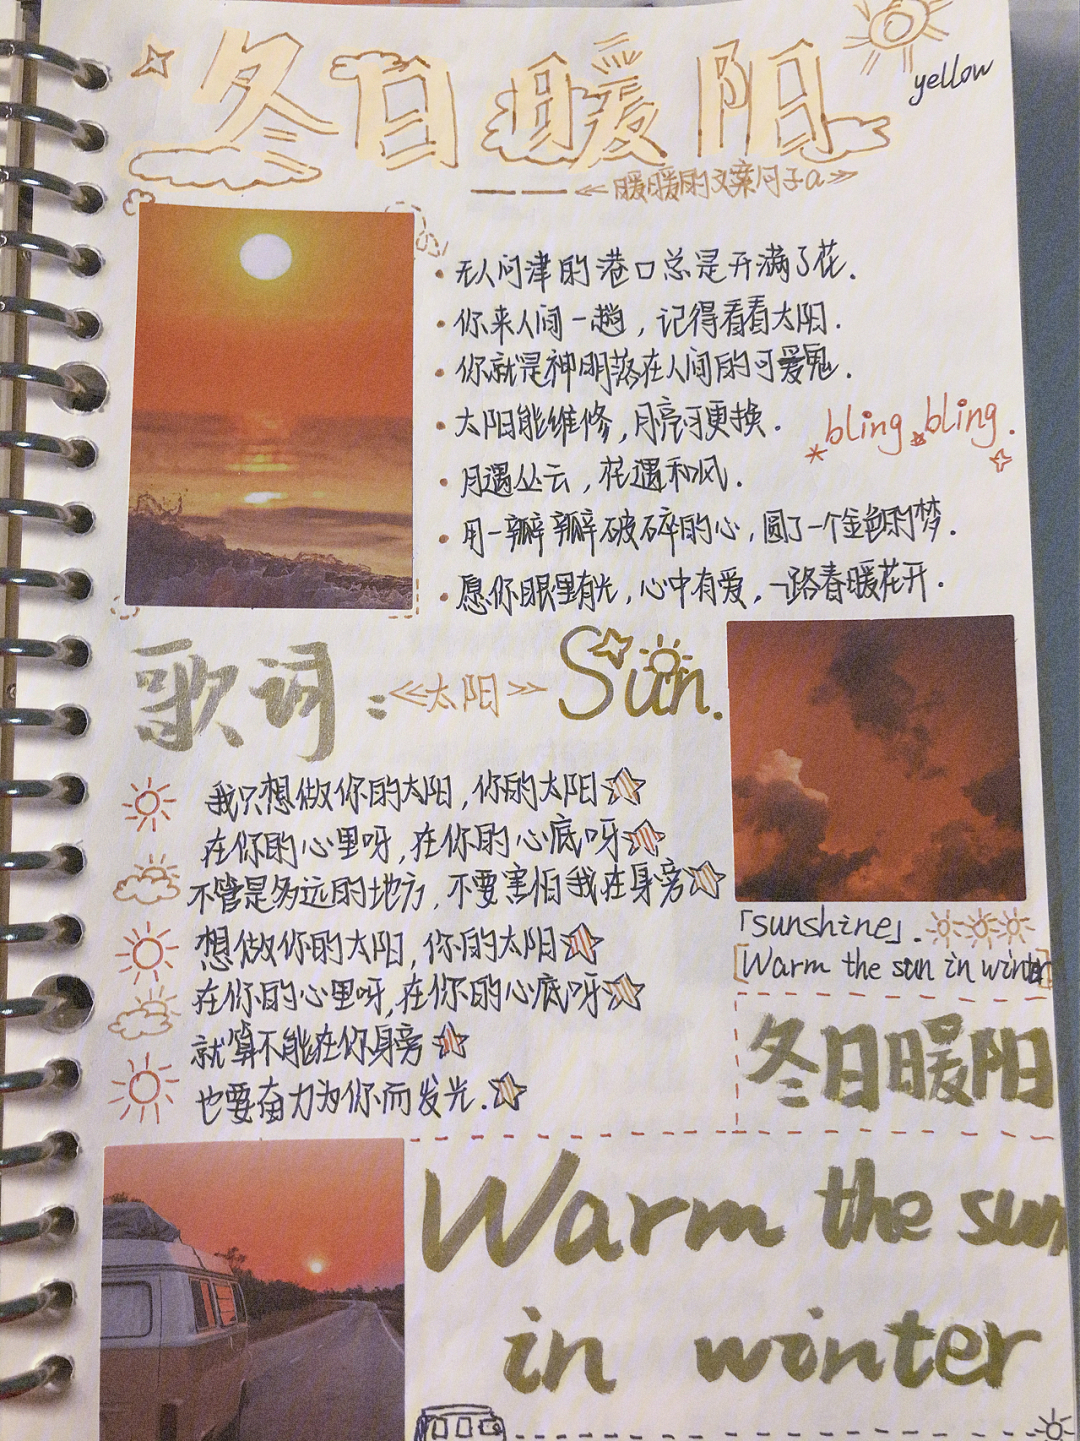 冬日暖阳
yellow
——≪暖暖的文案句子a≫
·无人问津的港口总是开满了花.
·你来人间一趟，记得看看太阳.
·你就是神明落在人间的可爱鬼.
·太阳能维修，月亮可更换.
bling bling.
·月遇丛云，花遇和风.
·用一瓣瓣破碎的心，圆了一个金色的梦.
·愿你眼里有光，心中有爱，一路春暖花开.
歌词：≪太阳≫ Sun.
我只想做你的太阳，你的太阳
在你的心里呀，在你的心底呀
不管是多远的地方，不要害怕我在身旁
想做你的太阳，你的太阳
在你的心里呀，在你的心底呀
就算不能在你身旁
也要奋力为你而发光.
「sunshine」.
[Warm the sun in winter]
冬日暖阳
Warm the sun
in winter